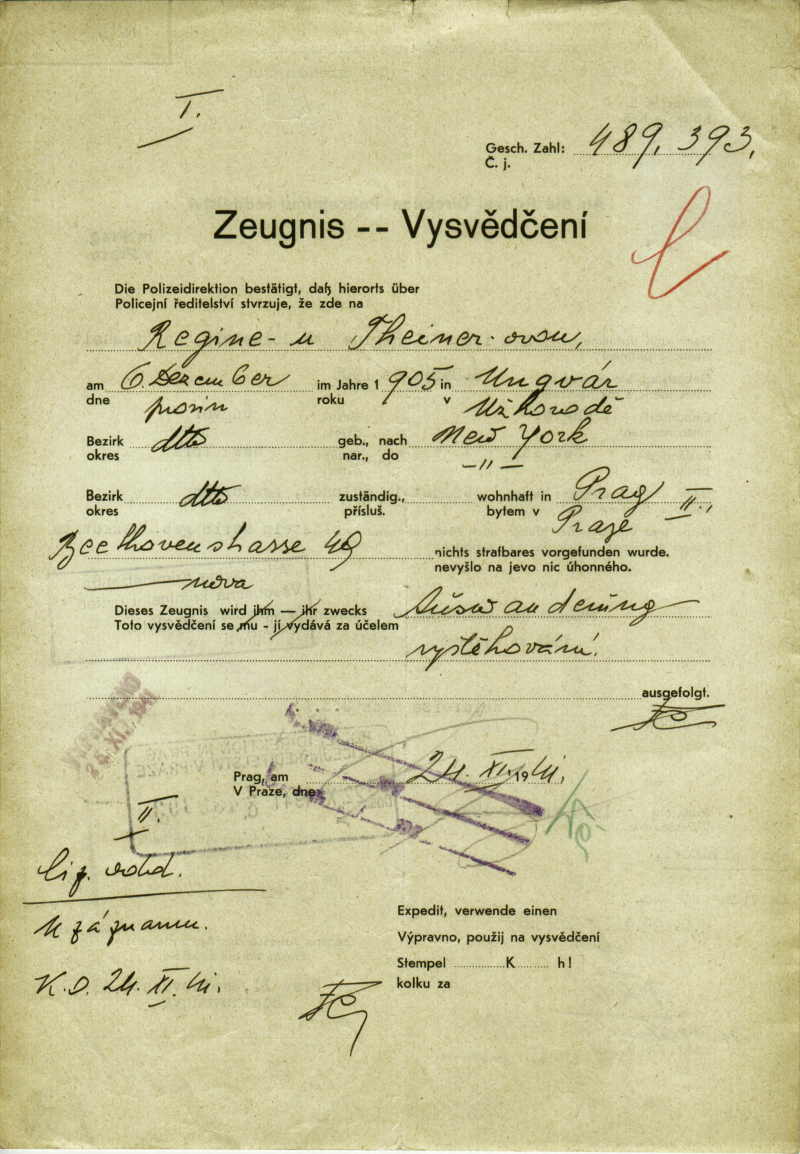 I.
Gesch. Zahl: 489,393,
Č. j.
Zeugnis -- Vysvědčení
Die Polizeidirektion bestätigt, daß hierorts über
Policejní ředitelství stvrzuje, že zde na
Regine-u Theiner-ovou,
am 6. Dezember im Jahre 1905 in Ungvár
dne prosin roku v Užhorodě
Bezirk dtto geb., nach New York
okres nar., do -"-
Bezirk dtto zuständig., wohnhaft in Prag II.,
okres přísluš. bytem v Praze
Beethovenstrasse 49 nichts strafbares vorgefunden wurde.
ova nevyšlo na jevo nic úhonného.
Dieses Zeugnis wird ihm — ihr zwecks Auswanderung
Toto vysvědčení se mu - jí vydává za účelem
vystěhování.
ausgefolgt.
24. XI. 1941
Prag, am 24. XI. 1941.
V Praze, dne
II.
K záznamu.
K.D. 24. XI. 41.
Expedit, verwende einen
Výpravno, použij na vysvědčení
Stempel K h!
kolku za